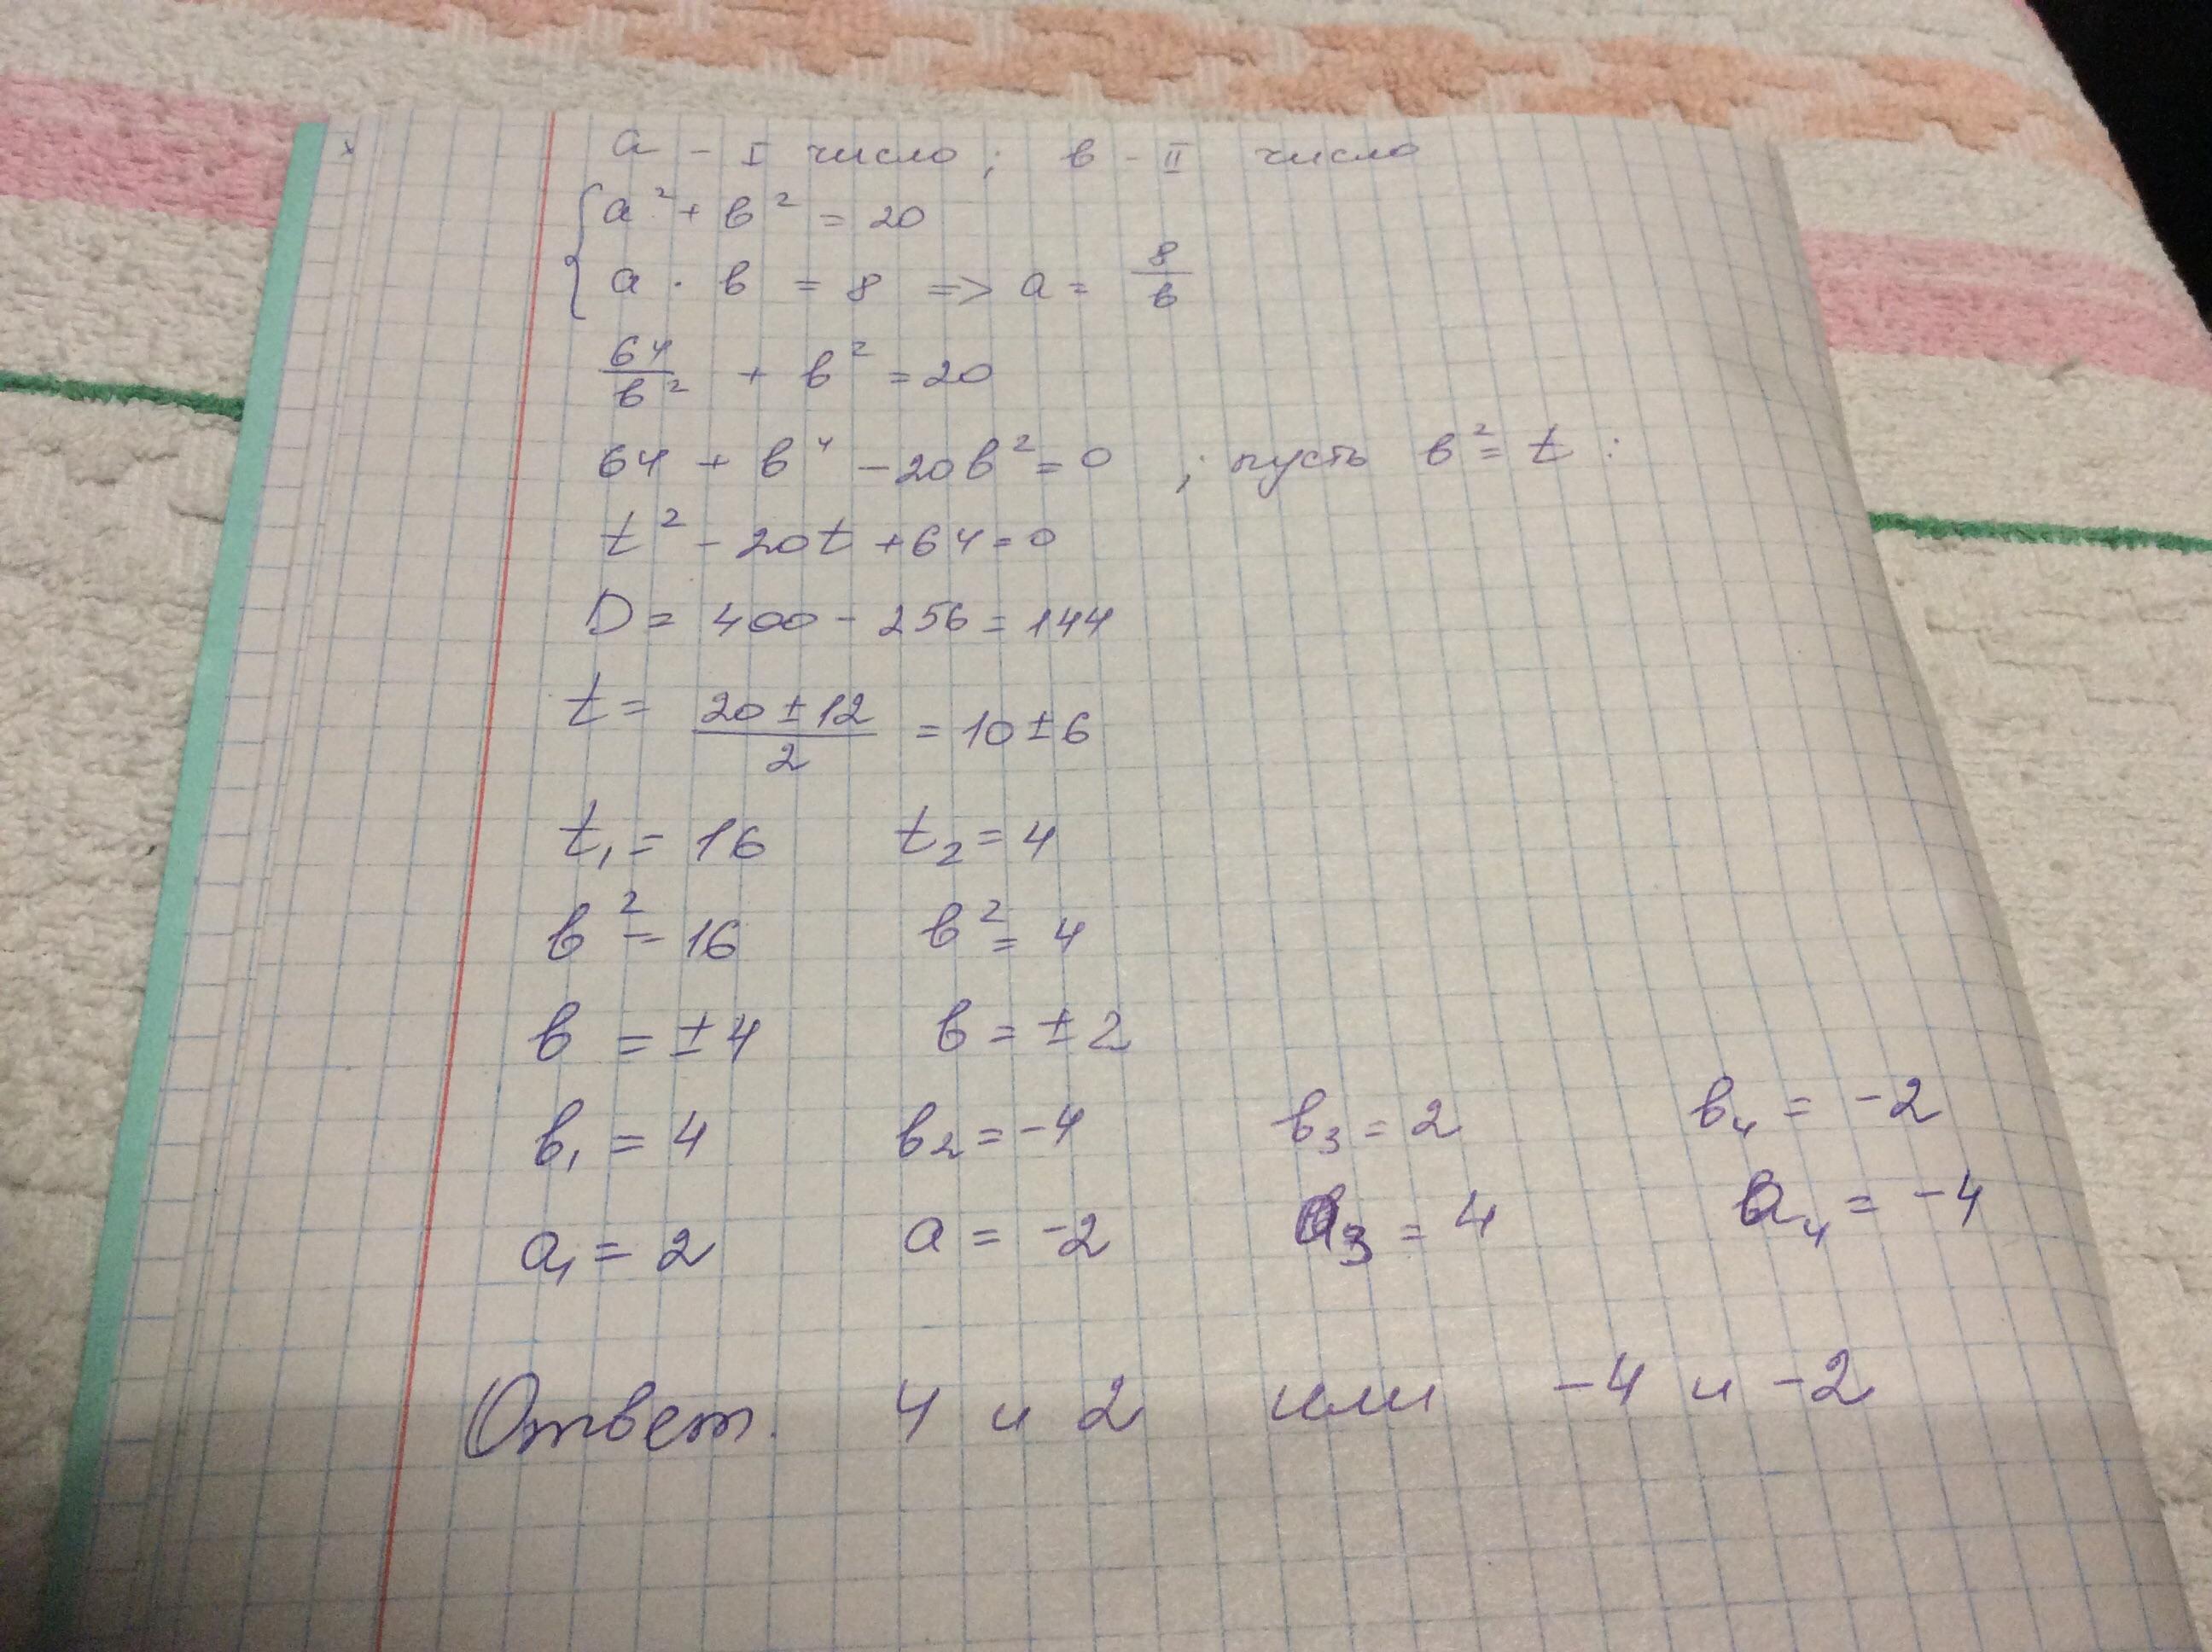 a - I число; в - II число
a² + в² = 20
a · в = 8 => a = 8/в
64/в² + в² = 20
64 + в⁴ - 20в² = 0 ; пусть в² = t :
t² - 20t + 64 = 0
D = 400 - 256 = 144
t = (20 ± 12)/2 = 10 ± 6
t₁ = 16 t₂ = 4
в² = 16 в² = 4
в = ± 4 в = ± 2
в₁ = 4 в₂ = -4 в₃ = 2 в₄ = -2
a₁ = 2 a = -2 a₃ = 4 a₄ = -4
Ответ. 4 и 2 или -4 и -2